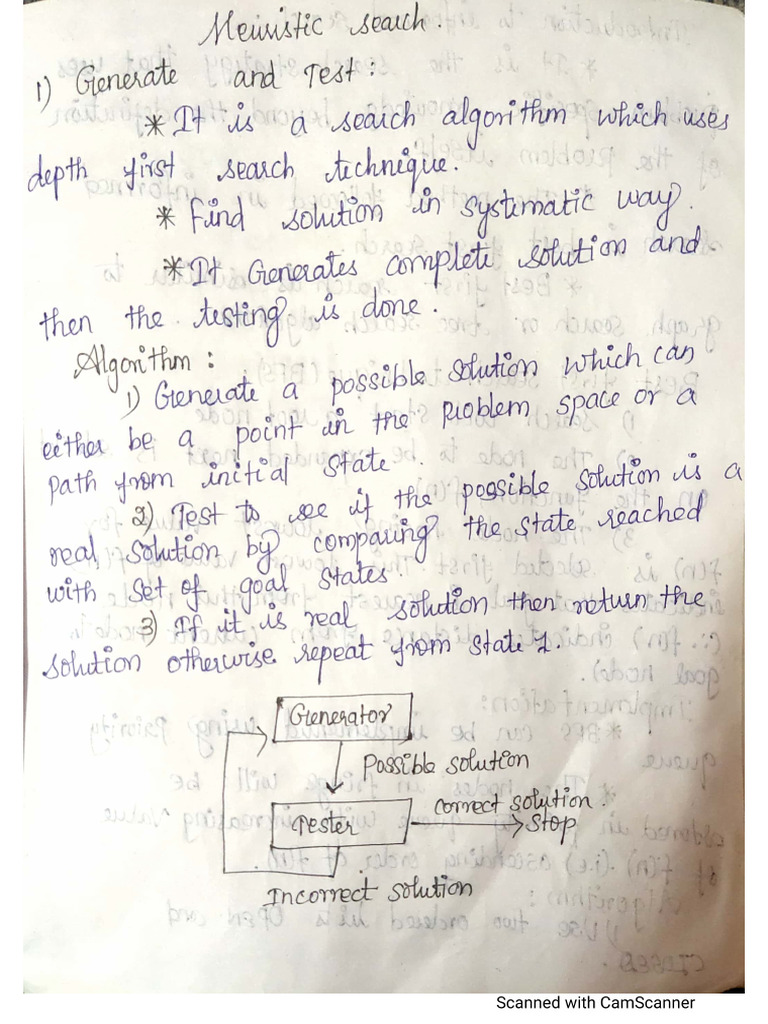 Heuristic search.
1) Generate and Test:
* It is a search algorithm which uses
depth first search technique.
* Find solution in systematic way.
* It Generates complete solution and
then the testing is done.
Algorithm:
1) Generate a possible solution which can
either be a point in the problem space or a
path from initial state.
2) Test to see if the possible solution is a
real solution by comparing the state reached
with set of goal states.
3) If it is real solution then return the
solution otherwise repeat from state 1.
Generator
Possible solution
Tester
correct solution
Stop
Incorrect solution
Scanned with CamScanner